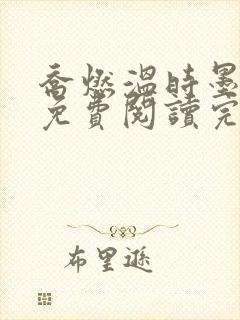 喬燃溫時墨
免費閱讀完
布里遜